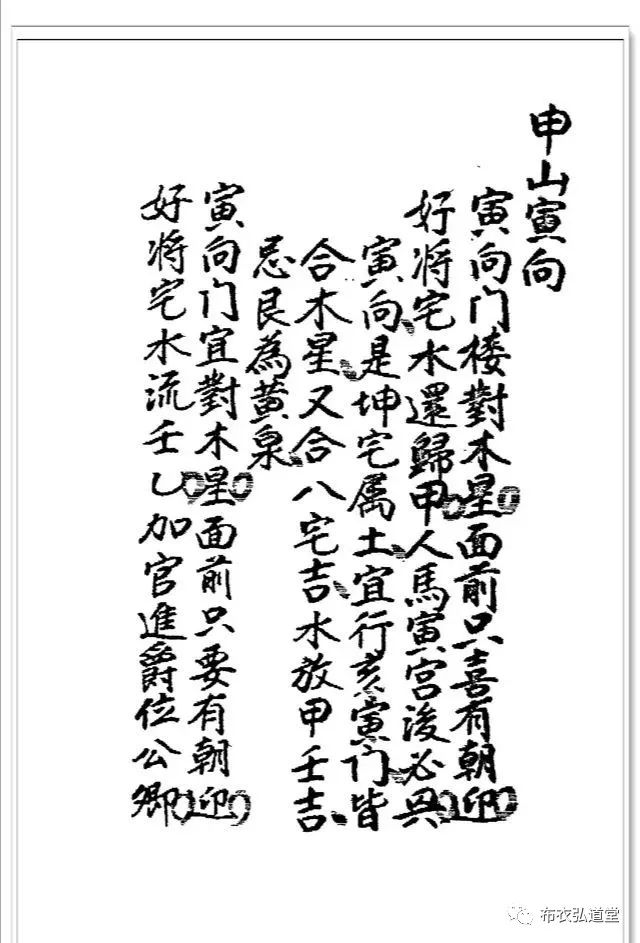 申山寅向
寅向门楼對木星面前只喜有朝迎
好将宅水還歸甲人馬寅宫後必興
寅向是坤宅属土宜行亥寅门皆
合木星又合八宅吉水放甲壬吉
忌艮為黄泉
寅向门宜對木星面前只要有朝迎
好将宅水流壬乙加官進爵位公卿
布衣弘道堂